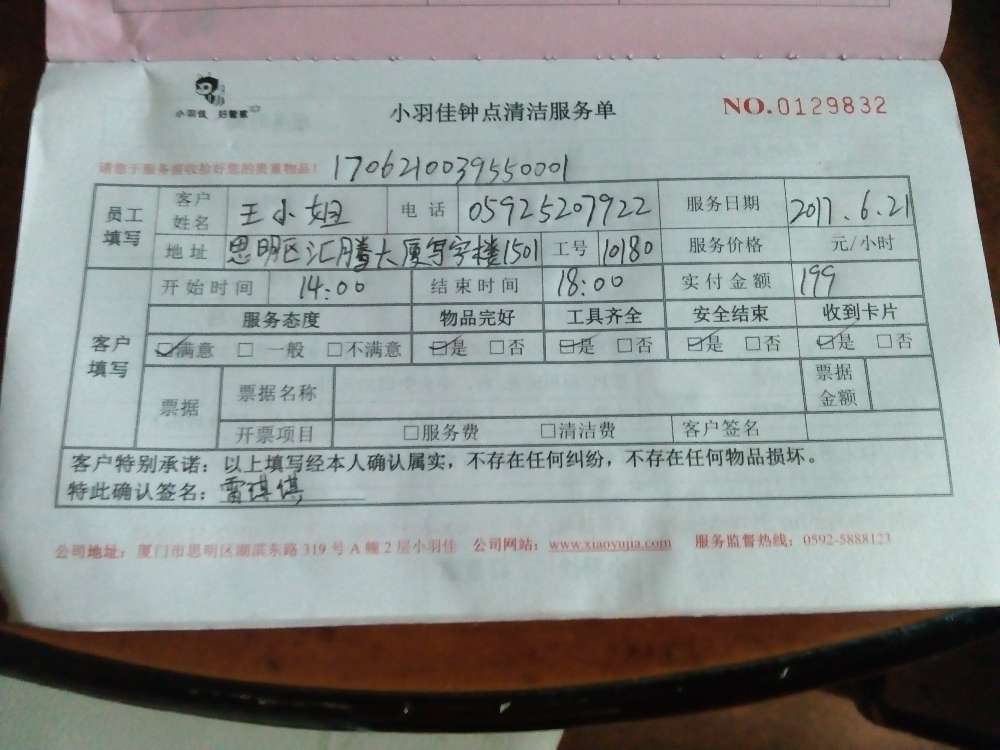 小羽佳 好管家
小羽佳钟点清洁服务单
NO.0129832
请您于服务前收拾好您的贵重物品! 1706210039550001
员工填写 客户姓名 王小姐 电话 05925207922 服务日期 2017.6.21
地址 思明区汇腾大厦写字楼1501 工号 10180 服务价格 元/小时
客户填写 开始时间 14:00 结束时间 18:00 实付金额 199
服务态度 物品完好 工具齐全 安全结束 收到卡片
☑满意 □一般 □不满意 ☑是 □否 ☑是 □否 ☑是 □否 ☑是 □否
票据 票据名称 票据金额
开票项目 □服务费 □清洁费 客户签名
客户特别承诺:以上填写经本人确认属实,不存在任何纠纷,不存在任何物品损坏。
特此确认签名:雷琪
公司地址:厦门市思明区湖滨东路 319 号 A 幢 2 层小羽佳 公司网站:www.xiaoyujia.com 服务监督热线:0592-5888123